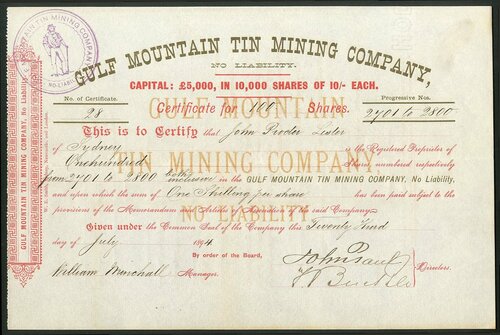 GULF MOUNTAIN TIN MINING COMPANY,
NO LIABILITY.
CAPITAL: £5,000, IN 10,000 SHARES OF 10/- EACH.
No. of Certificate. Certificate for 100 Shares. Progressive Nos.
28 2701 to 2800
This is to Certify that John Procter Lister
of Sydney is the Registered Proprietor of
One hundred Shares, numbered respectively
from 2701 to 2800 both inclusive in the GULF MOUNTAIN TIN MINING COMPANY, No Liability,
and upon which the sum of One Shilling per share has been paid subject to the
provisions of the Memorandum and Articles of Association of the said Company.
Given under the Common Seal of the Company this Twenty third
day of July 1894
By order of the Board,
William Minchall Manager.
John Paul
Directors.
GULF MOUNTAIN TIN MINING COMPANY, No Liability.
GULF MOUNTAIN
TIN MINING COMPANY
NO LIABILITY.